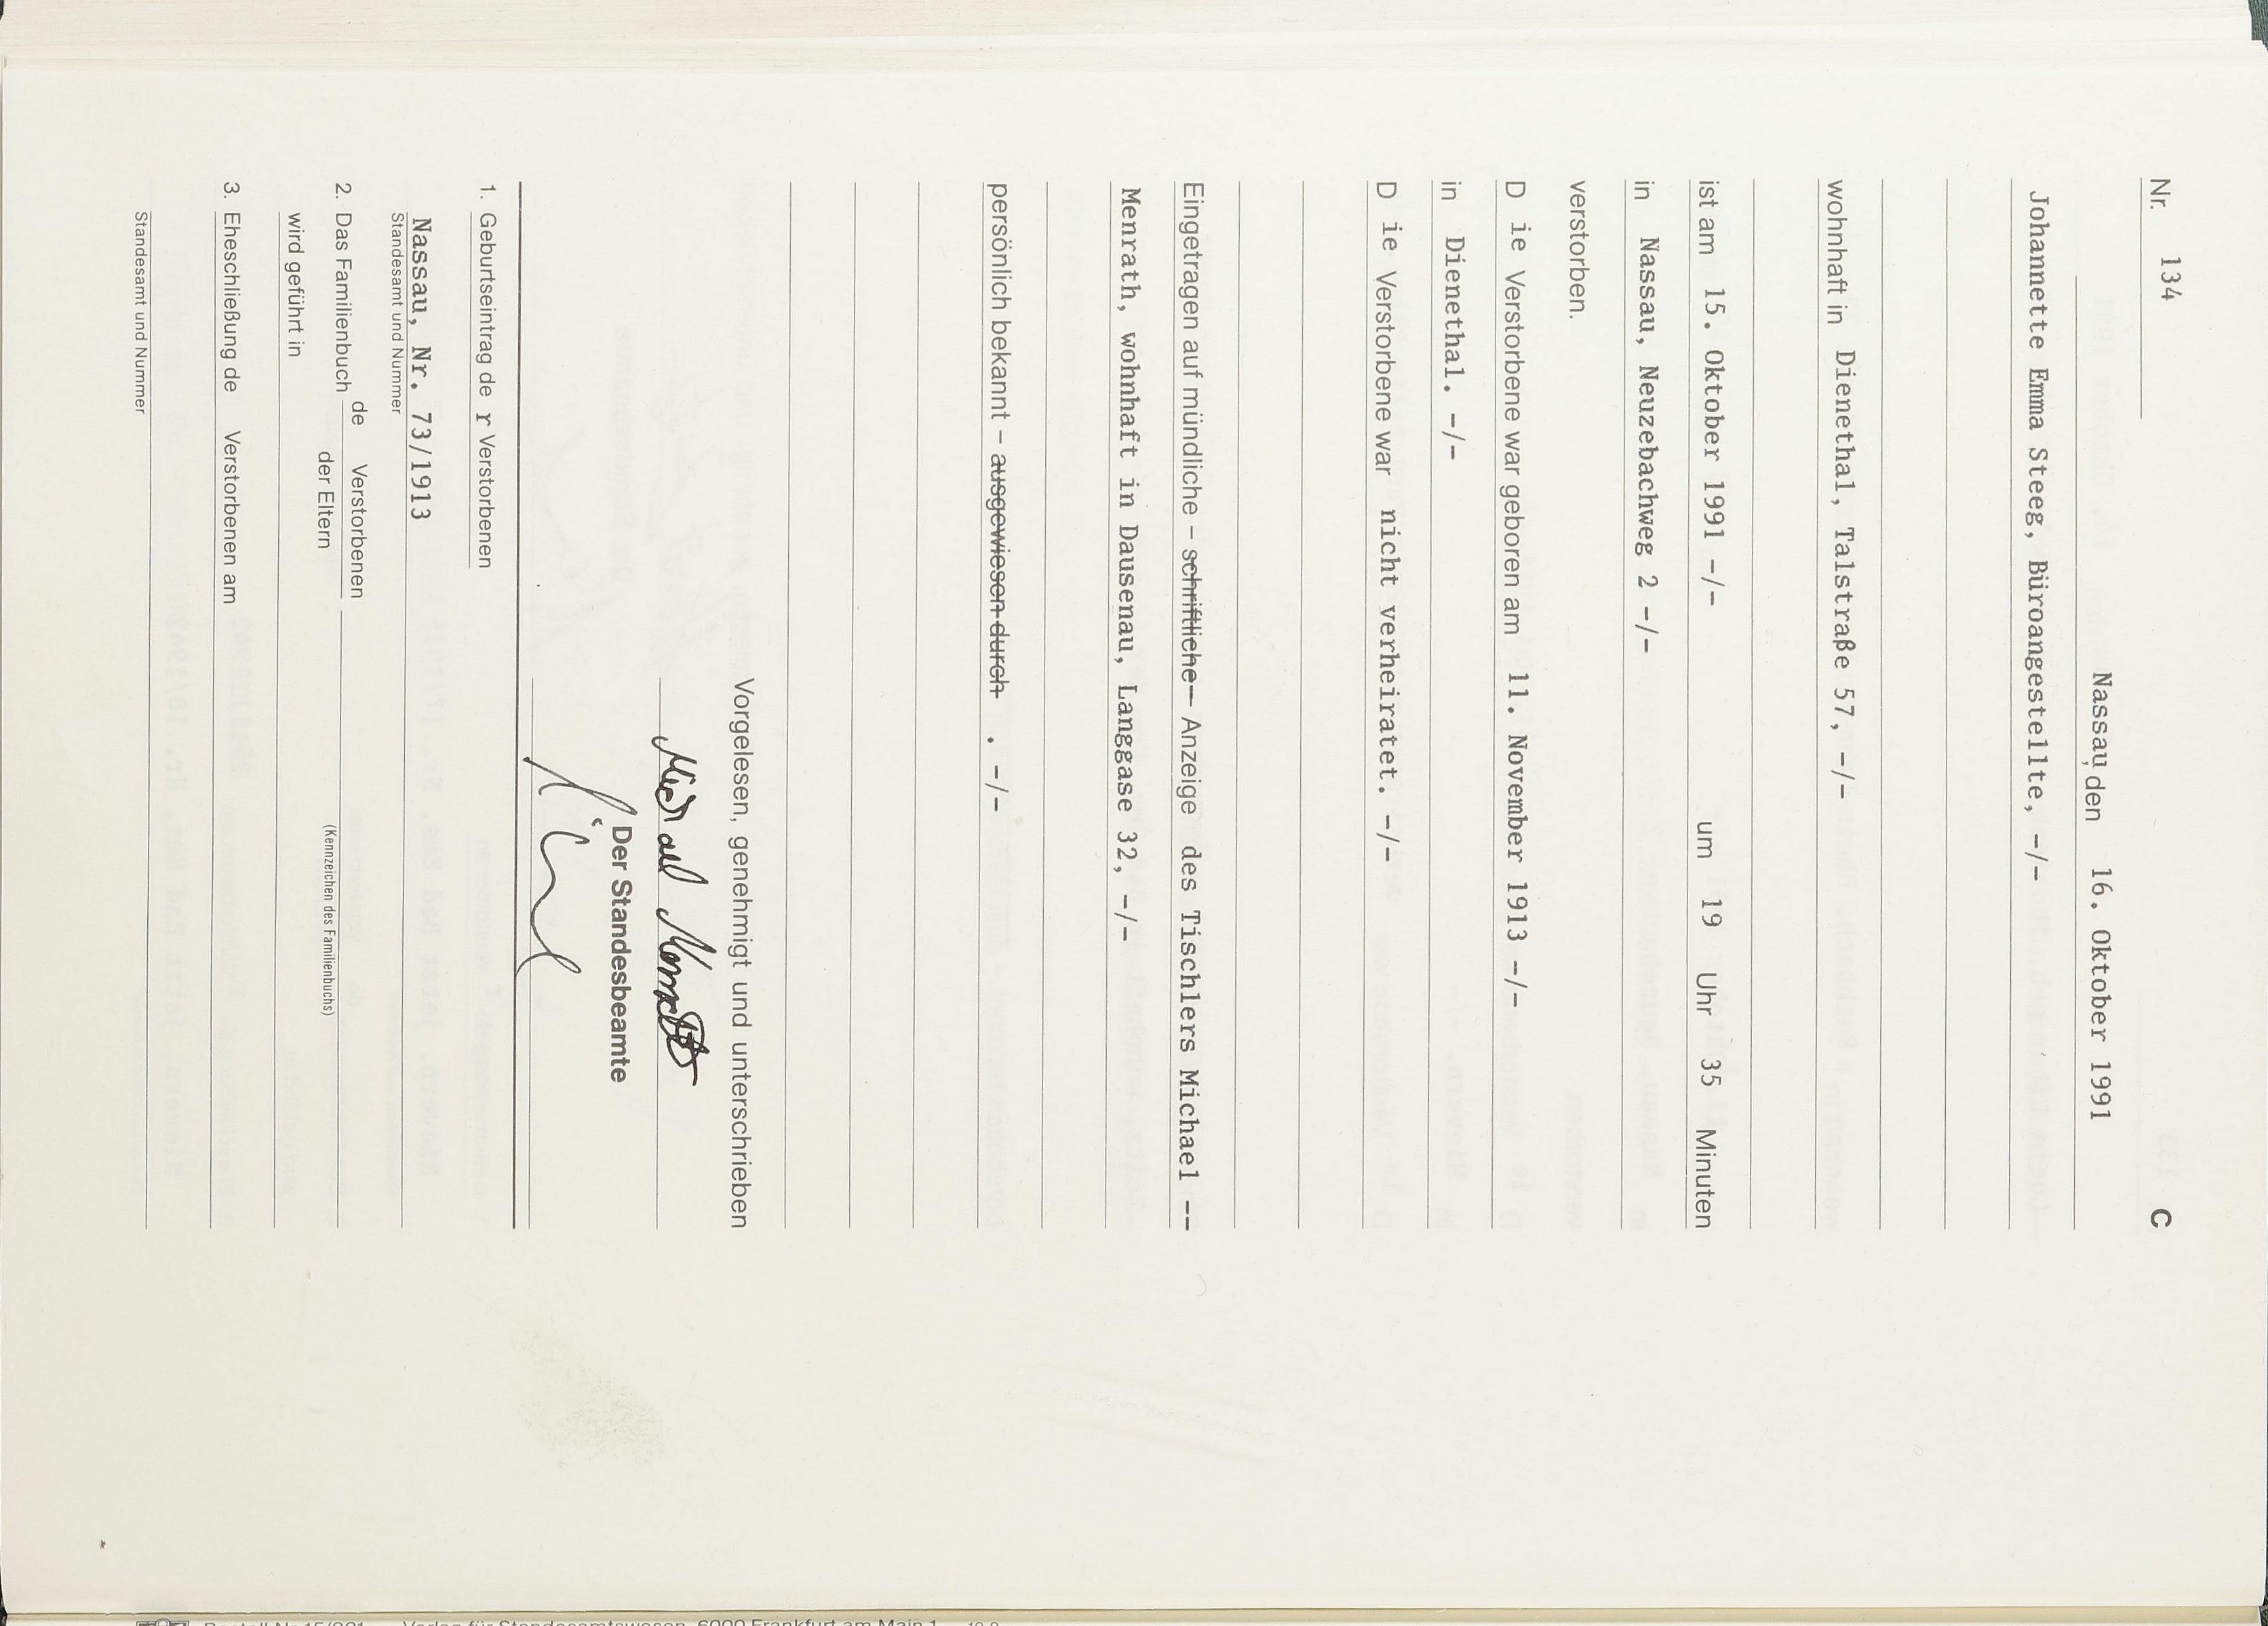 Nr. 134 C
Nassau, den 16. Oktober 1991
Johannette Emma Steeg, Büroangestellte, -/-
wohnhaft in Dienethal, Talstraße 57, -/-
ist am 15. Oktober 1991 -/- um 19 Uhr 35 Minuten
in Nassau, Neuzebachweg 2 -/-
verstorben.
D ie Verstorbene war geboren am 11. November 1913 -/-
in Dienethal. -/-
D ie Verstorbene war nicht verheiratet. -/-
Eingetragen auf mündliche – schriftliche – Anzeige des Tischlers Michael --
Menrath, wohnhaft in Dausenau, Langgase 32, -/-
persönlich bekannt – ausgewiesen durch . -/-
Vorgelesen, genehmigt und unterschrieben
Michael Menrath
Der Standesbeamte
1. Geburtseintrag de r Verstorbenen
Nassau, Nr. 73/1913
Standesamt und Nummer
2. Das Familienbuch de Verstorbenen
der Eltern
(Kennzeichen des Familienbuchs)
wird geführt in
3. Eheschließung de Verstorbenen am
Standesamt und Nummer